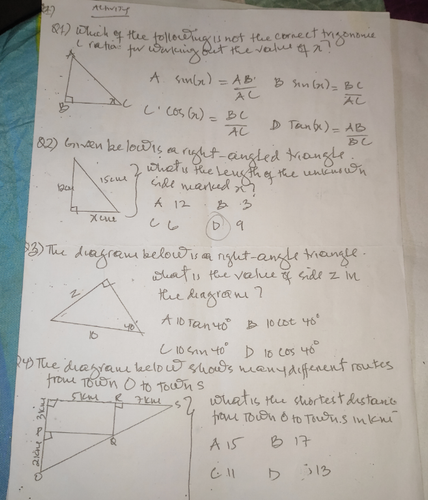 Activity
Q1) Which of the following is not the correct trigonome
c ratio for working out the value of x?
A
B
x
C
A sin(x) = AB/AC B sin(x) = BC/AC
C. cos(x) = BC/AC D Tan(x) = AB/BC
Q2) Given below is a right-angled triangle.
What is the length of the unknown
side marked x?
15cm
xcm
A 12 B 3
C 6 D 9
Q3) The diagram below is a right-angle triangle.
What is the value of side z in
the diagram?
z
10
40°
A 10 Tan 40° B 10 cot 40°
C 10 sin 40° D 10 cos 40°
Q4) The diagram below shows many different routes
from Town O to Town S
5km R 7km S
3km
2km
Q
O
What is the shortest distance
from Town O to Town S in km
A 15 B 17
C 11 D 13